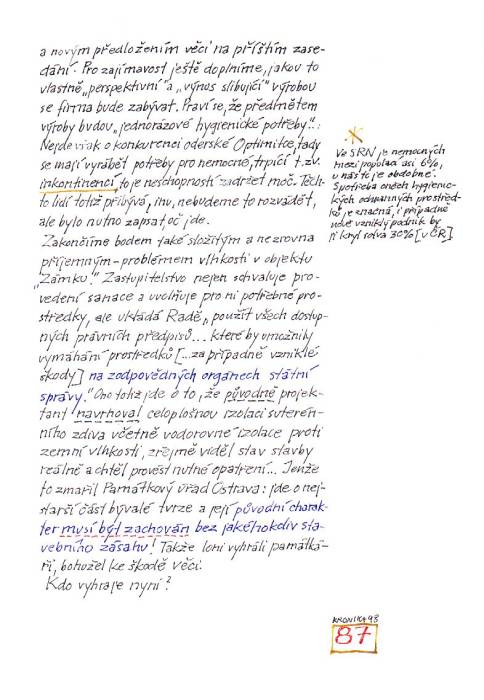 a novým předložením věci na příštím zase-
dání. Pro zajímavost ještě doplníme, jakou to
vlastně „perspektivní" a „výnos slibující" výrobou
se firma bude zabývat. Praví se, že předmětem
výroby budou „jednorázové hygienické potřeby".:
Nejde však o konkurenci oderské Optimitce, tady
se mají vyrábět potřeby pro nemocné, trpící t.zv.
inkontinencí, to je neschopností zadržet moč. Těch-
to lidí totiž přibývá, inu, nebudeme to rozvádět,
ale bylo nutno zapsat, oč jde.
Zakončíme bodem také složitým a nezrovna
příjemným - problémem vlhkosti v objektu
„Zámku". Zastupitelstvo nejen schvaluje pro-
vedení sanace a uvolňuje pro ni potřebné pro-
středky, ale ukládá Radě „použít všech dostup-
ných právních předpisů... které by umožnily
vymáhání prostředků [...za případně vzniklé
škody] na zodpovědných orgánech státní
správy." Ono totiž jde o to, že původně projek-
tant navrhoval celoplošnou izolaci suterén-
ního zdiva včetně vodorovné izolace proti
zemní vlhkosti, zřejmě viděl stav stavby
reálně a chtěl provést nutné opatření... Jenže
to zmařil Památkový úřad Ostrava: jde o nej-
starší část bývalé tvrze a její původní charak-
ter musí být zachován bez jakéhokoliv sta-
vebního zásahu! Takže loni vyhráli památká-
ři, bohužel ke škodě věci.
Kdo vyhraje nyní?
Ve SRN je nemocných
mezi populací asi 6%,
u nás to je obdobné.
Spotřeba oněch hygienic-
kých ochranných prostřed-
ků je značná, i případně
nově vzniklý podnik by
ji kryl solva 30% [v ČR].
KRONIKA 98
87